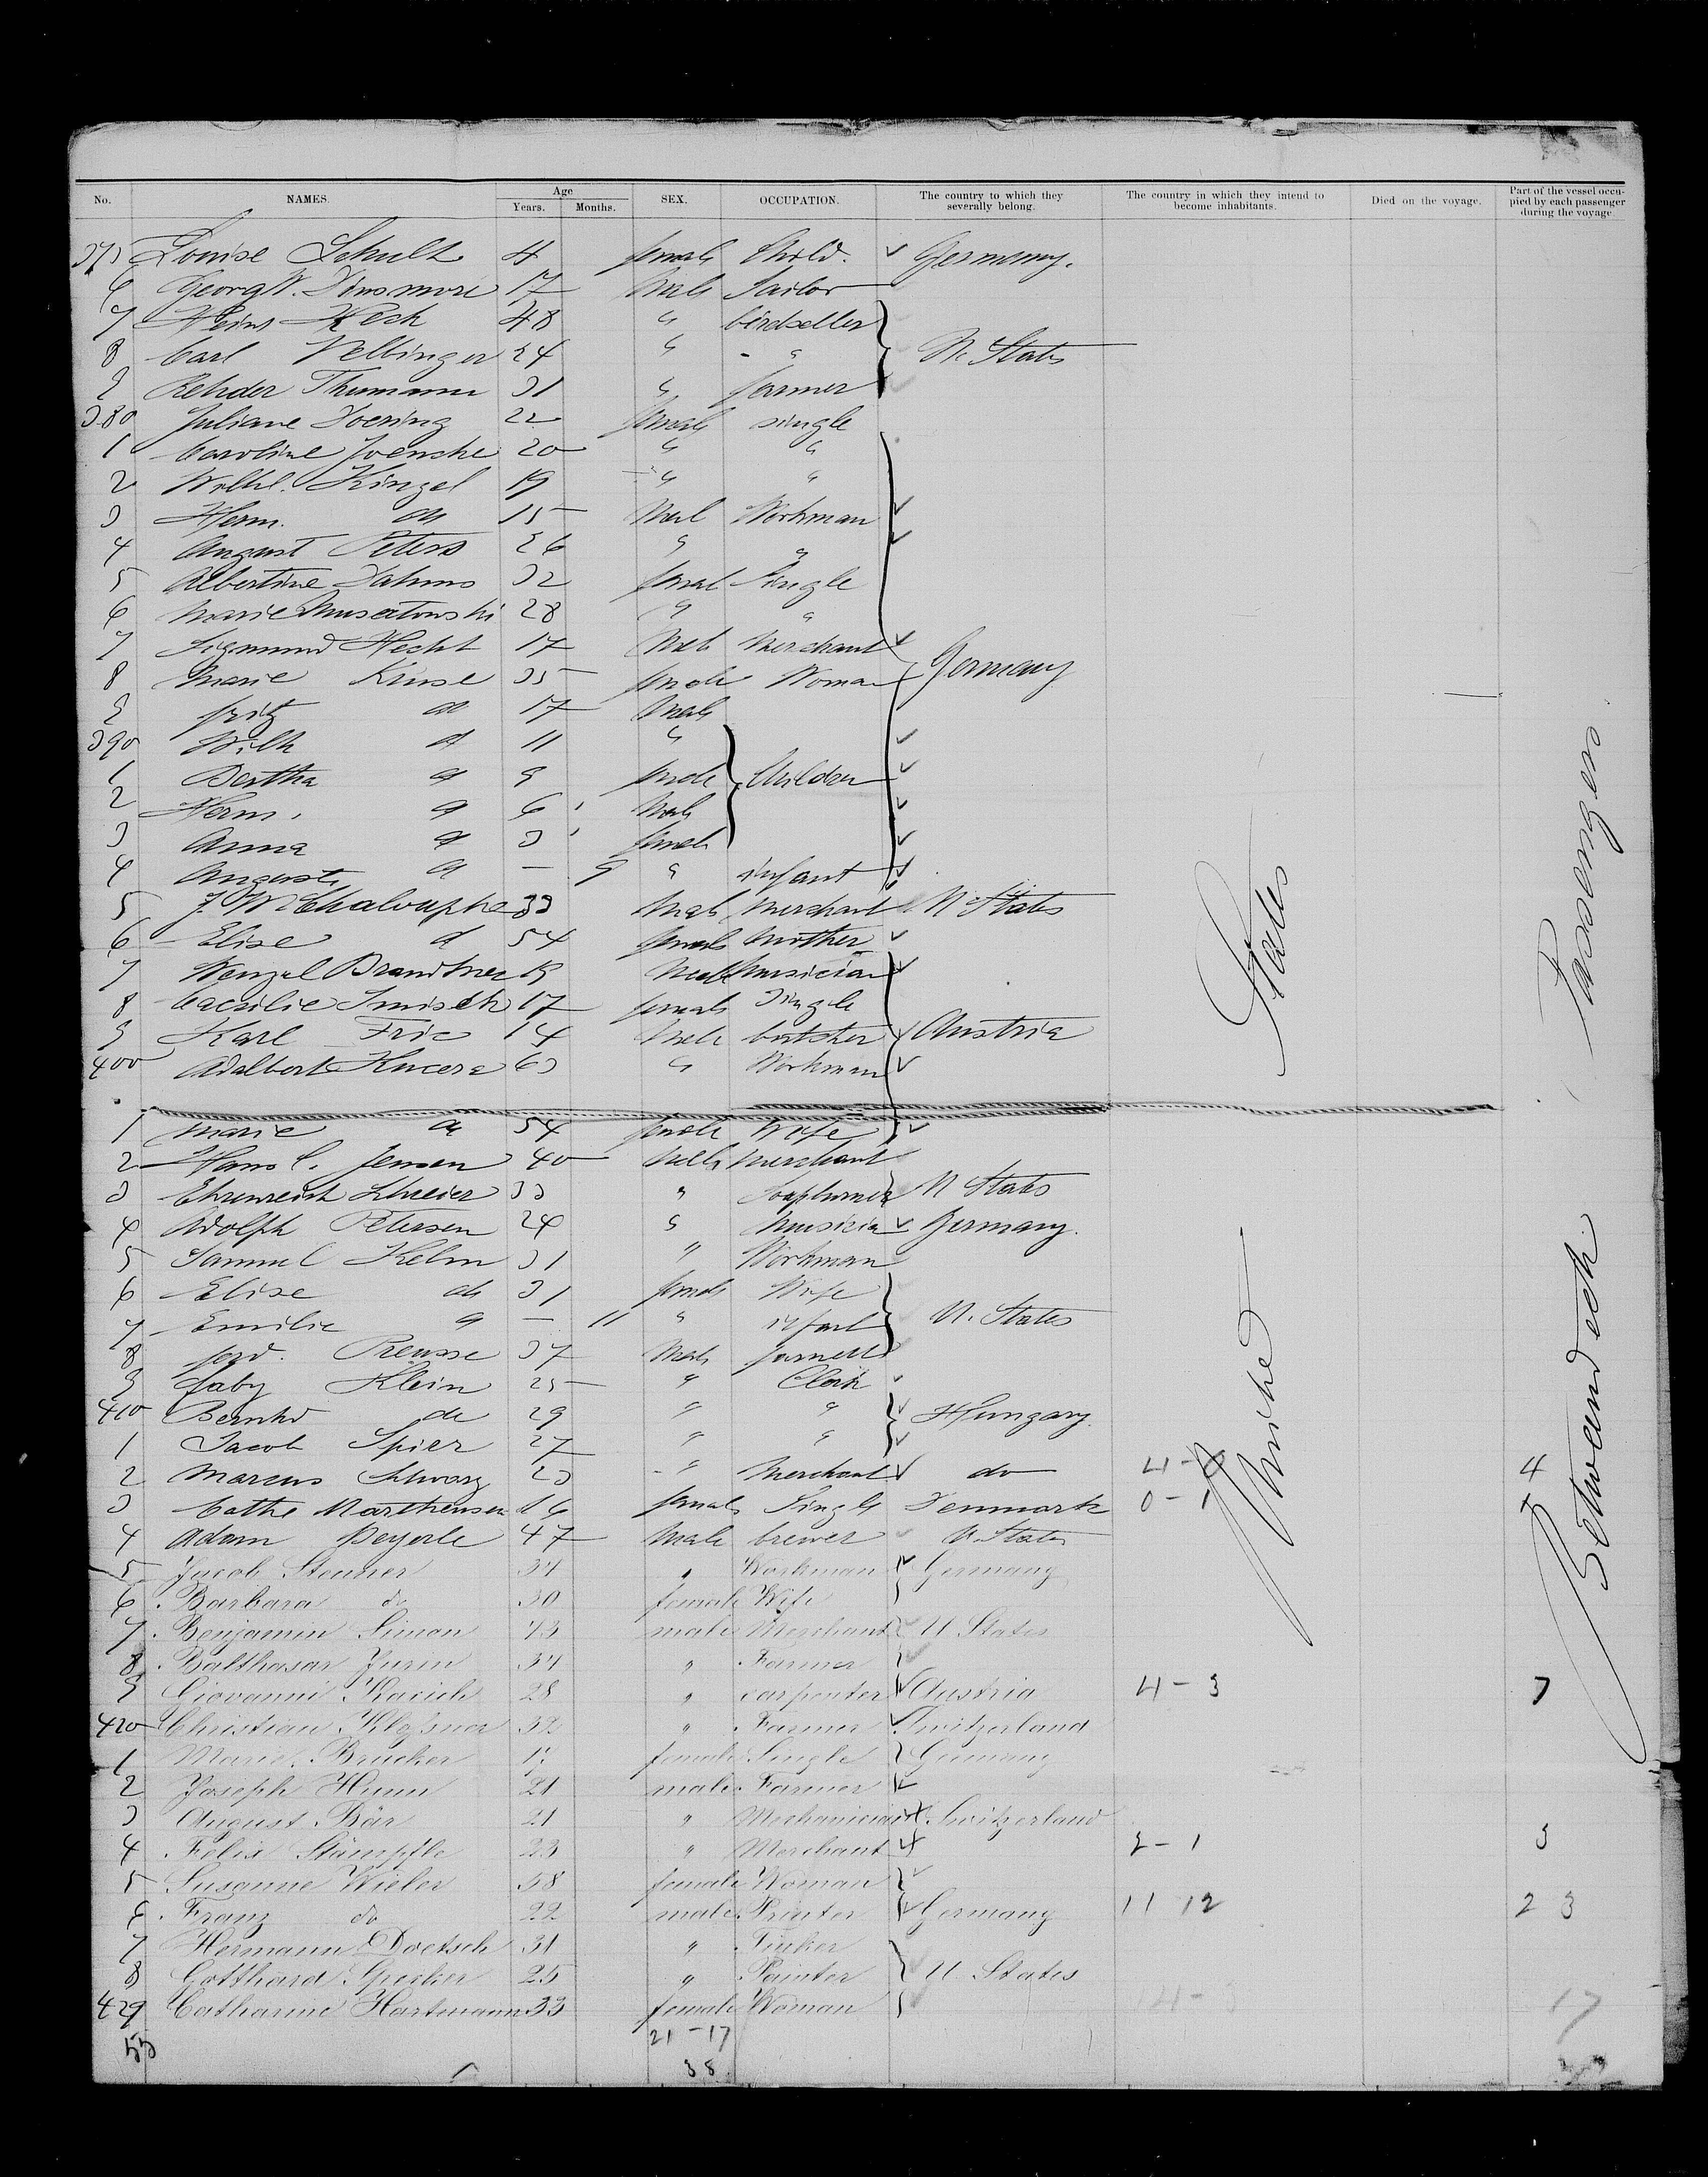 No. NAMES. Age Years. Months. SEX. OCCUPATION. The country to which they severally belong. The country in which they intend to become inhabitants. Died on the voyage. Part of the vessel occupied by each passenger during the voyage
375 Louise Schult 4 female Child. Germany.
6 Georg W. Dinsmore 17 Male Sailor
7 Heinr Reck 48 " birdseller
8 Carl Velbinger 24 " " U. States
9 Rehder Thumann 31 " farmer
380 Juliane Doering 22 female single
1 Caroline Joenche 20 " "
2 Wilhl. Kinzel 19 " "
3 Herm. do 15 Mal Workman
4 August Peters 26 " "
5 Albertine Dahms 32 femal Single
6 Marie 28 " "
7 Sigmund Hecht 17 Male Merchant
8 Marie Kruse 35 female Woman Germany
9 fritz do 17 Male
390 Wilh d 11 "
1 Bertha d 9 female Children
2 Herm. d 6 Male
3 Anna d 3 female
4 Auguste d — 9 " infant
5 J. W. Chaloupka 33 Male Merchant U States
6 Elise d 54 female Mother
7 Wenzel 19 Male Musician
8 Caecilie 17 female Single
9 Karl Fric 14 Male butcher Austria
400 Adalbert Kucera 63 " Workman
1 Marie do 54 female Wife
2 Hans C. Jensen 40 Male Merchant
3 Ehrenreich Schreier 33 " U States
4 Adolph Petersen 24 " Musician Germany.
5 Samuel Kelm 31 " Workman
6 Elise do 31 female Wife
7 Emilie d — 11 " infant U. States
8 ferd. Preusse 37 Male farmer
9 Klein 25 " Clerk
410 Bernhd do 29 " " Hungary.
1 Jacob Spier 27 " "
2 Marcus Schwarz 23 " Merchant do 4-0 4
3 Cathe Marthensen 16 female Single Denmark 0-1 1
4 Adam Peyerle 47 Male brewer U. States
5 Jacob Steuner 34 " Workman Germany
6 Barbara do 30 female Wife
7 Benjamin Simon 43 male Merchant U States
8 Balthasar 34 " Farmer
9 Giovanni Kacich 28 " carpenter Austria 4-3 7
420 Christian Kloßner 32 " Farmer Switzerland
1 Marie Brucker female Single Germany
2 Joseph Hunn 21 male Farmer
3 August Bär 21 " Mechanician Switzerland
4 Felix Stämpfle 23 " Merchant 2-1 3
5 Susanne Wieler 58 female Woman
6 Franz do 22 male Printer Germany 11 12 23
7 Hermann Doetsch 31 " Tinker
8 Gotthard Specker 25 " Painter U. States
429 Catharine Hartmann 33 female Woman 17
55 21-17
38
United States
Between deck Passengers